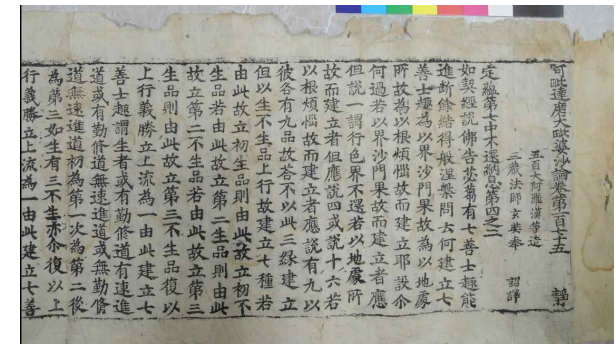 阿毗達磨大毗婆沙論卷第一百七十五
五百大阿羅漢等造
三藏法師玄奘奉　詔譯
定蘊第七中不還納息第四之二
如契經說佛告苾芻有七善士趣能
進斷餘結得般涅槃問云何建立七
善士趣為以界沙門果故為以地處
所故為以根煩惱故而建立耶設尒
何過若以界沙門果故而建立者應
但說一謂行色界不還若以地處所
故而建立者但應說四或說十六若
以根煩惱故而建立者應說有九以
彼各有九品故荅不以此三緣建立
但以生不生品上行故建立七種若
由此故立初生品則由此故立初不
生品若由此故立第二生品則由此
故立第二不生品若由此故立第三
生品則由此故立第三不生品復以
上行義勝立上流為一由此建立七
善士趣謂生者或有勤修道有速進
道或有勤修道無速進道或無勤修
道無速進道初為第一次為第二後
為第三如生有三不生亦尒復以上
行義勝立上流為一由此建立七善